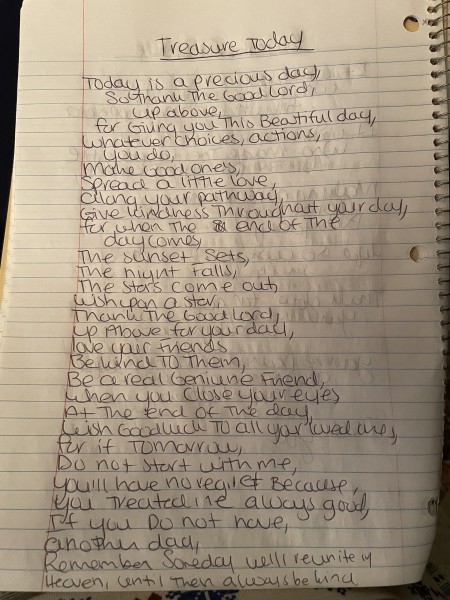 Treasure Today
Today is a precious day,
So thank The Good Lord,
up above,
for Giving you This Beautiful day,
whatever choices, actions,
you do,
make Good ones,
Spread a little love,
along your pathway,
Give kindness Throughout your day,
for when The end of The
day comes,
The sunset Sets,
The night Falls,
The stars come out,
wish upon a star,
Thank The Good Lord,
up Above for your day,
love your Friends
Be kind To Them,
Be a real Geniune Friend,
when you close your eyes
At The end of The day,
wish Goodluck To all your loved ones,
for if Tomorrow,
Do not start with me,
you'll have no regret Because,
you Treated me always good,
If you Do not have,
another day,
Remember Someday we'll reunite in
Heaven, until Then always be kind